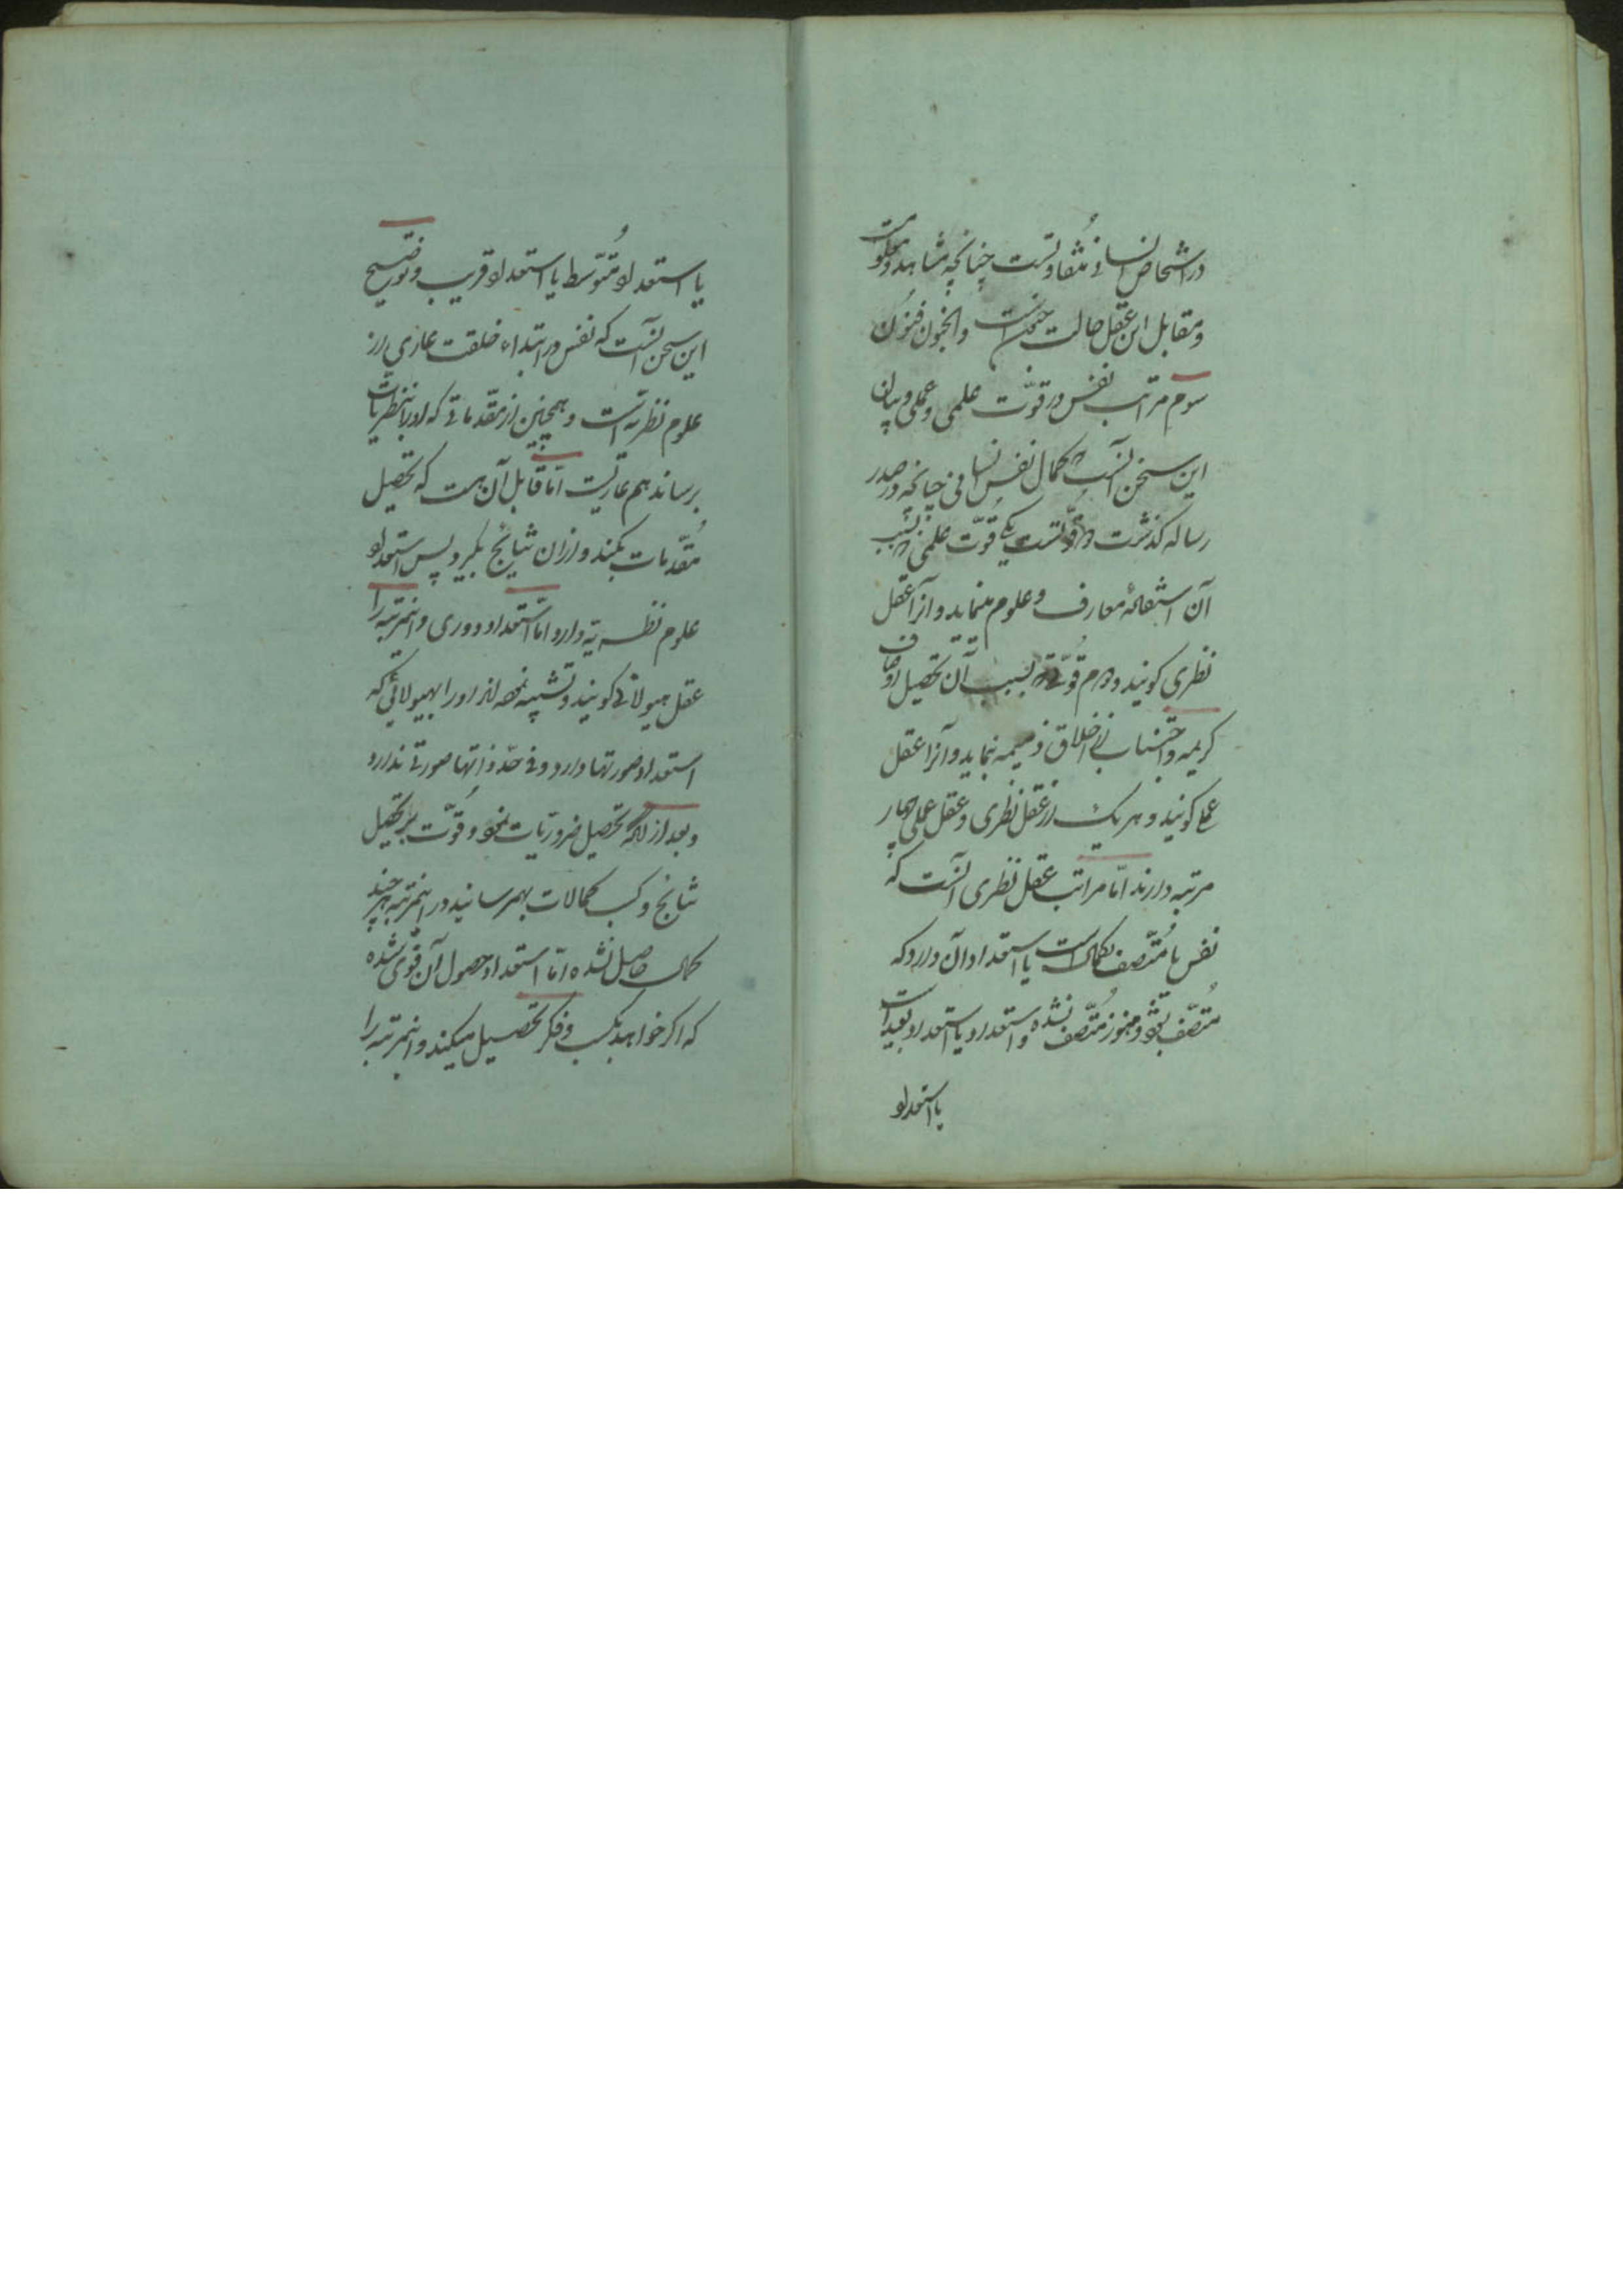 در اشخاص انسانی متفاوتست چنانچه مشاهد و معلومست
و مقابل این عقل حالت جنونست والجنون فنون
سوم مراتب نفس در قوّت علمی و عملی و بیان
این سخن آنست که کمال نفس انسانی چنانچه در صدر
رساله گذشت دو قوّتست یکی قوّت علمی که بسبب
آن استفاضهٔ معارف و علوم مینماید و آنرا عقل
نظری گویند و دوم قوّتی که بسبب آن تحصیل اوصاف
کریمه و اجتناب از اخلاق ذمیمه نماید و آنرا عقل
عملی گویند و هر یک از عقل نظری و عقل عملی چهار
مرتبه دارند امّا مراتب عقل نظری آنست که
نفس یا مُتّصف بکمالست یا استعداد آن دارد که
مُتّصف بشود و هنوز مُتّصف نشده و استعداد یا استعداد بعیدست
یا استعداد
یا استعداد مُتوّسط یا استعداد قریب و توضیح
این سخن آنست که نفس در ابتداء خلقت عاری از
علوم نظریّه است و همچنین از مقدّماتی که او را بنظریات
برساند هم عاریست امّا قابل آن هست که تحصیل
مُقدّمات بکند و از آن نتایج بگیرد پس استعداد
علوم نظریّه دارد امّا استعداد دوری و اینمرتبه را
عقل هیولانی گویند و تشبیه نموده‌اند او را بهیولائی که
استعداد صورتها دارد و فی حدّ ذاتها صورتی ندارد
و بعد از آنکه تحصیل ضروریّات نمود و قُوّت بر تحصیل
نتایج و کسب کمالات بهمرسانید در اینمرتبه هر چند
کمال حاصل نشده امّا استعداد حصول آن قوی شده
که اگر خواهد بکسب و فکر تحصیل میکند و اینمرتبه را